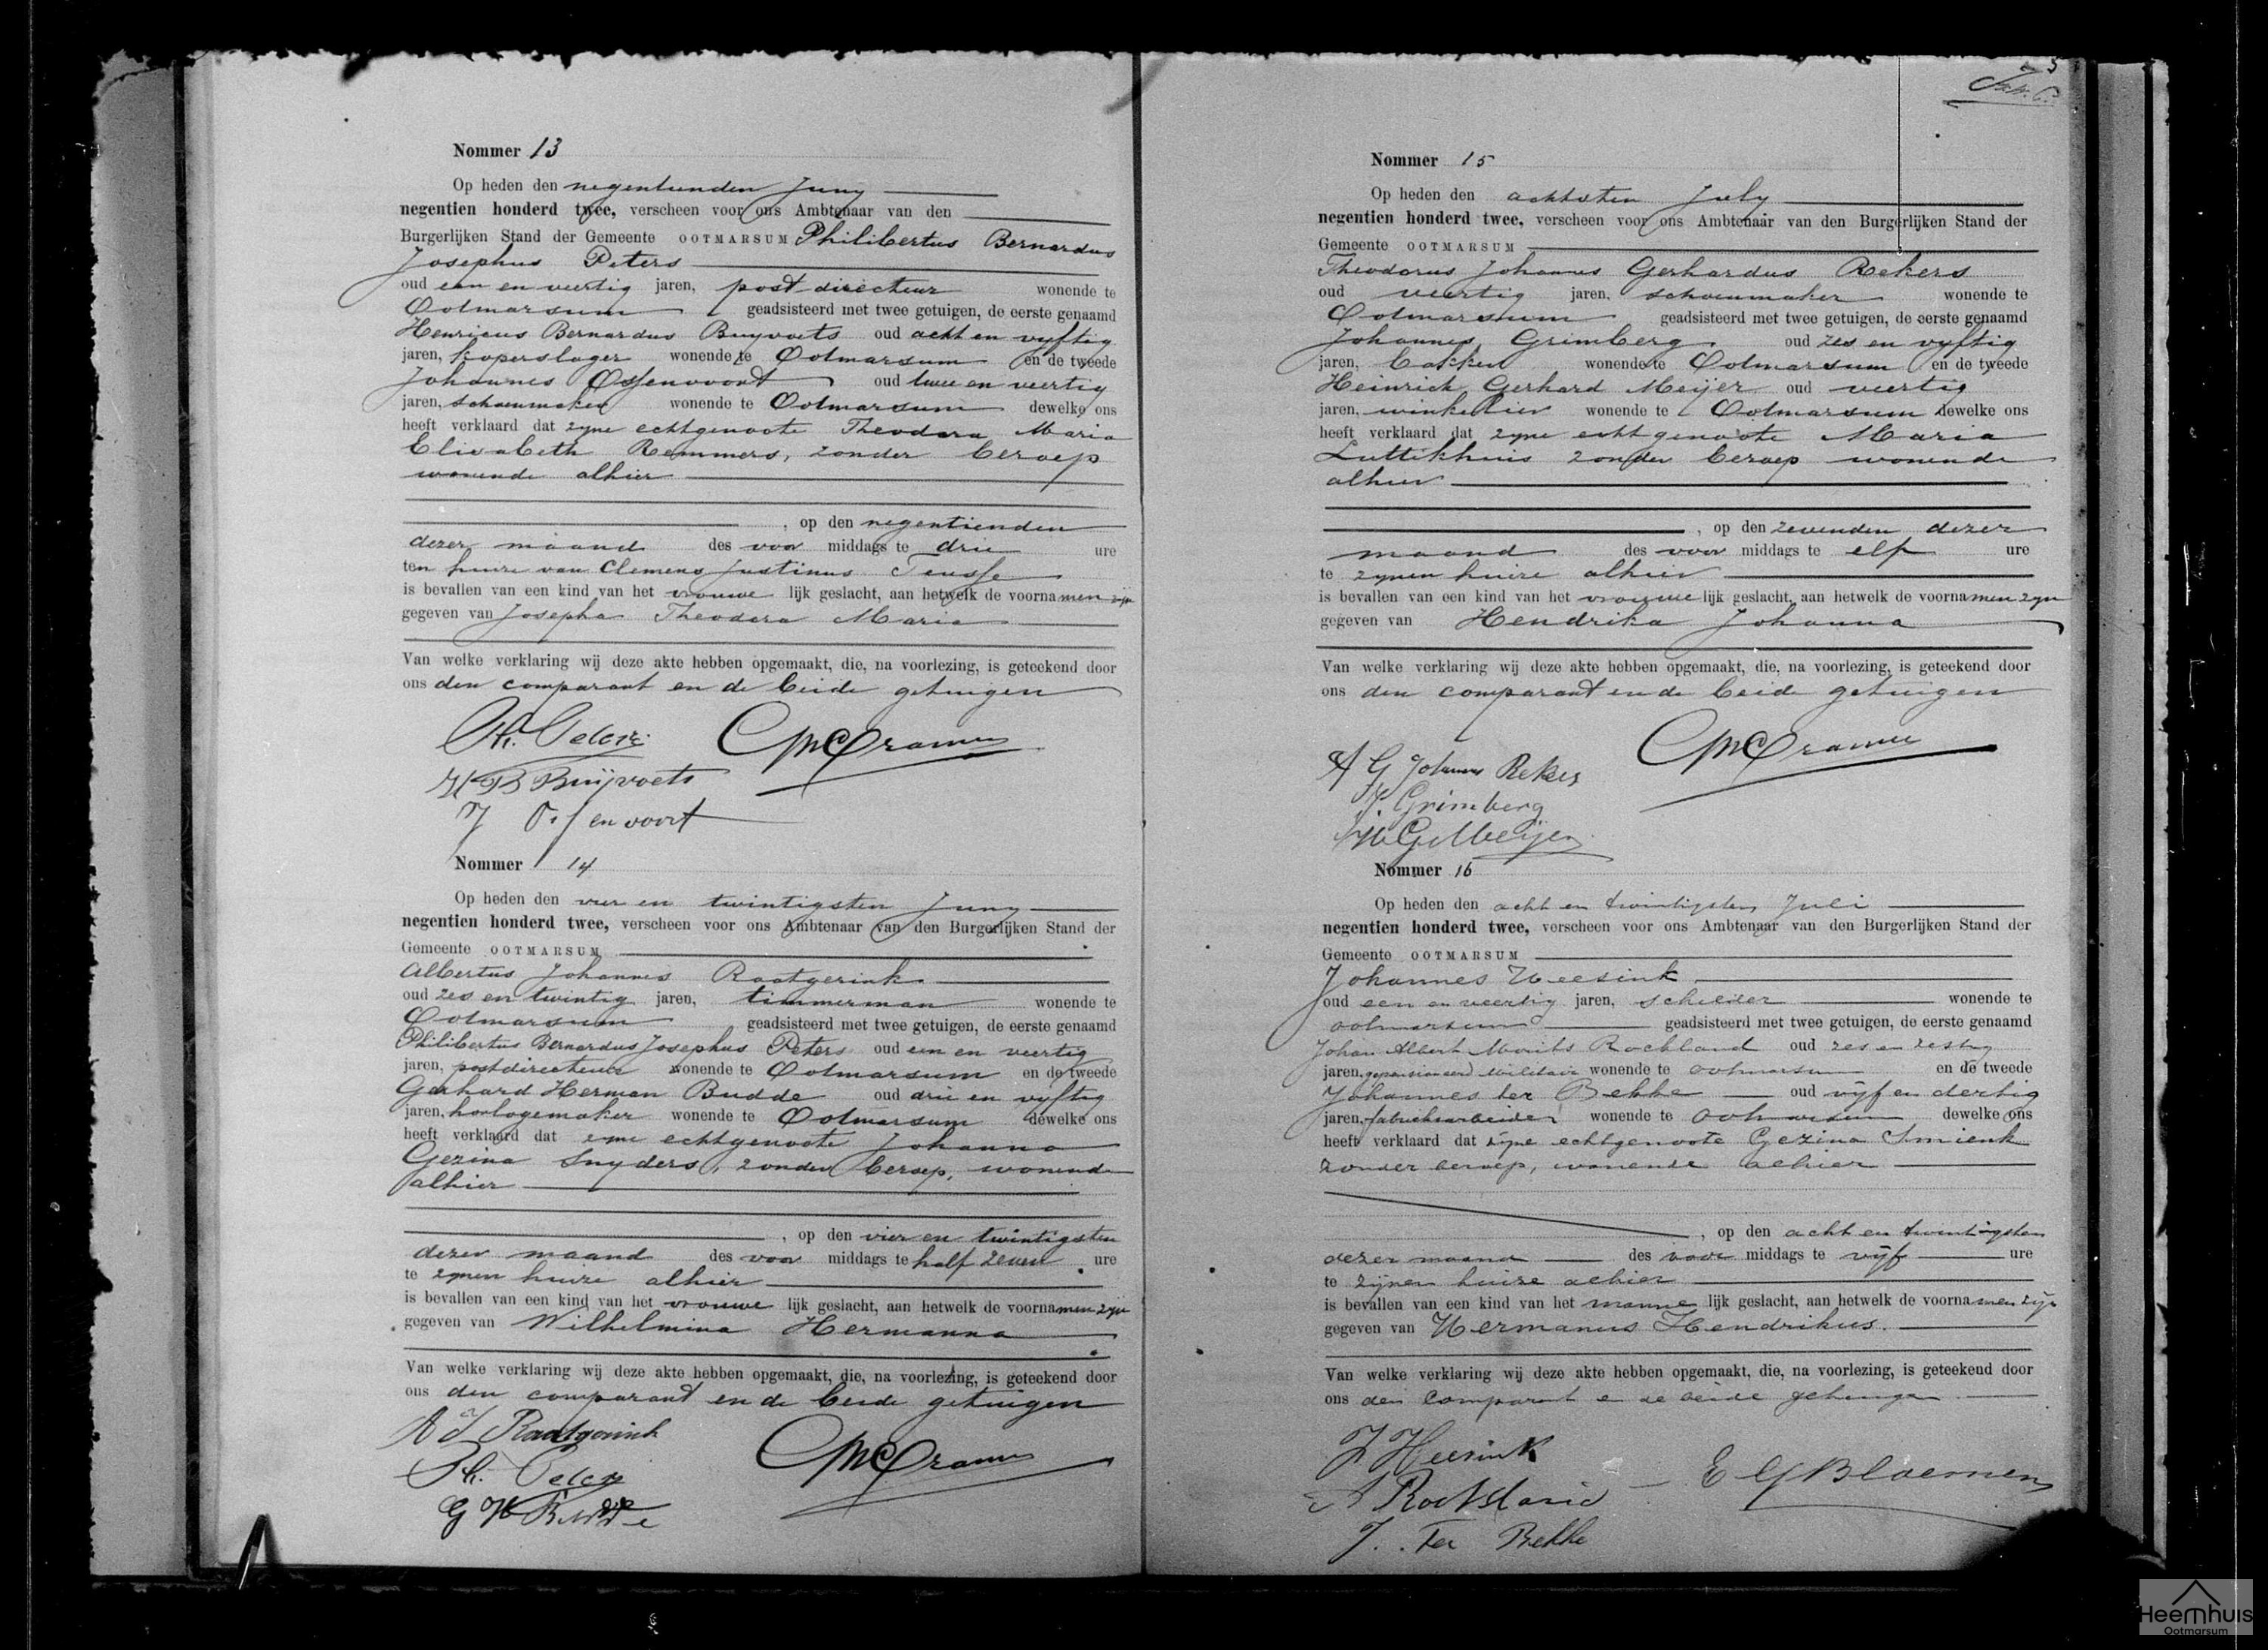 Nommer 13
Op heden den negentienden Juny
negentien honderd twee, verscheen voor ons Ambtenaar van den
Burgerlijken Stand der Gemeente OOTMARSUM Philibertus Bernardus
Josephus Peters
oud een en veertig jaren, postdirecteur wonende te
Ootmarsum geadsisteerd met twee getuigen, de eerste genaamd
Henricus Bernardus Buyvoets oud acht en vyftig
jaren, koperslager wonende te Ootmarsum en de tweede
Johannes Ossenvoort oud twee en veertig
jaren, schoenmaker wonende te Ootmarsum dewelke ons
heeft verklaard dat zyne echtgenoote Theodora Maria
Elisabeth Remmers, zonder beroep
wonende alhier
, op den negentienden
dezer maand des voor middags te drie ure
ten huize van Clemens Justinus Teusse
is bevallen van een kind van het vrouwe lijk geslacht, aan hetwelk de voornamen zyn
gegeven van Josepha Theodora Maria
Van welke verklaring wij deze akte hebben opgemaakt, die, na voorlezing, is geteekend door
ons den comparant en de beide getuigen
Ph. Peters CMCramer
HB Buijvoets
J Ossenvoort
Nommer 14
Op heden den vier en twintigsten Juny
negentien honderd twee, verscheen voor ons Ambtenaar van den Burgerlijken Stand der
Gemeente OOTMARSUM
Albertus Johannes Raatgerink
oud zes en twintig jaren, timmerman wonende te
Ootmarsum geadsisteerd met twee getuigen, de eerste genaamd
Philibertus Bernardus Josephus Peters oud een en veertig
jaren, postdirecteur wonende te Ootmarsum en de tweede
Gerhard Herman Budde oud drie en vyftig
jaren, horlogemaker wonende te Ootmarsum dewelke ons
heeft verklaard dat zyne echtgenoote Johanna
Gezina Snyders, zonder beroep, wonende
alhier
, op den vier en twintigsten
dezer maand des voor middags te half zeven ure
te zynen huize alhier
is bevallen van een kind van het vrouwe lijk geslacht, aan hetwelk de voornamen zyn
gegeven van Wilhelmina Hermanna
Van welke verklaring wij deze akte hebben opgemaakt, die, na voorlezing, is geteekend door
ons den comparant en de beide getuigen
A J Raatgerink
Ph. Peters CMCramer
G H Budde
5
Nommer 15
Op heden den achtsten July
negentien honderd twee, verscheen voor ons Ambtenaar van den Burgerlijken Stand der
Gemeente OOTMARSUM
Theodorus Johannes Gerhardus Rekers
oud veertig jaren, schoenmaker wonende te
Ootmarsum geadsisteerd met twee getuigen, de eerste genaamd
Johannes Grimberg oud zes en vyftig
jaren, bakker wonende te Ootmarsum en de tweede
Heinrich Gerhard Meijer oud veertig
jaren, winkelier wonende te Ootmarsum dewelke ons
heeft verklaard dat zyne echtgenoote Maria
Luttikhuis zonder beroep wonende
alhier
, op den zevenden dezer
maand des voor middags te elf ure
te zynen huize alhier
is bevallen van een kind van het vrouwe lijk geslacht, aan hetwelk de voornamen zyn
gegeven van Hendrika Johanna
Van welke verklaring wij deze akte hebben opgemaakt, die, na voorlezing, is geteekend door
ons den comparant en de beide getuigen
CMCramer
G Johannes Rekers
J. Grimberg
H G Meijer
Nommer 16
Op heden den acht en twintigsten Juli
negentien honderd twee, verscheen voor ons Ambtenaar van den Burgerlijken Stand der
Gemeente OOTMARSUM
Johannes Heesink
oud een en veertig jaren, schilder wonende te
Ootmarsum geadsisteerd met twee getuigen, de eerste genaamd
Johan Albert Mouits Rockland oud zes en zestig
jaren, gepensioneerd militair wonende te Ootmarsum en de tweede
Johannes ter Bekke oud vijf en dertig
jaren, fabrieksarbeider wonende te Ootmarsum dewelke ons
heeft verklaard dat zijne echtgenoote Gezina Smienk
zonder beroep, wonende alhier
, op den acht en twintigsten
dezer maand des voor middags te vijf ure
te zijnen huize alhier
is bevallen van een kind van het manne lijk geslacht, aan hetwelk de voornamen zijn
gegeven van Hermanus Hendrikus.
Van welke verklaring wij deze akte hebben opgemaakt, die, na voorlezing, is geteekend door
ons den comparant en de beide getuigen
J Heesink
Rockland E G Bloemen
J. Ter Bekke
Heemhuis
Ootmarsum